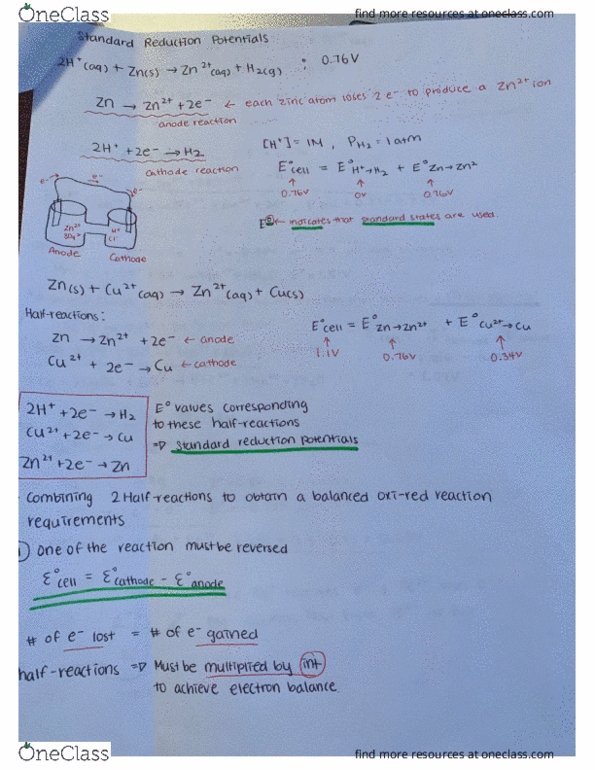 OneClass
find more resources at oneclass.com
Standard Reduction Potentials
2H⁺(aq) + Zn(s) → Zn²⁺(aq) + H₂(g) : 0.76V
Zn → Zn²⁺ + 2e⁻ ← each zinc atom loses 2 e⁻ to produce a Zn²⁺ ion
anode reaction
2H⁺ + 2e⁻ → H₂
cathode reaction
[H⁺] = 1M , P_H₂ = 1 atm
E°cell = E°H⁺→H₂ + E°Zn→Zn²
↑ ↑ ↑
0.76V 0V 0.76V
E° ← indicates that standard states are used.
e⁻ e⁻ e⁻
Zn²⁺
H⁺
Cl⁻
Anode Cathode
Zn(s) + Cu²⁺(aq) → Zn²⁺(aq) + Cu(s)
Half-reactions:
Zn → Zn²⁺ + 2e⁻ ← anode
Cu²⁺ + 2e⁻ → Cu ← cathode
E°cell = E°Zn→Zn²⁺ + E°Cu²⁺→Cu
↑ ↑ ↑
1.1V 0.76V 0.34V
2H⁺ + 2e⁻ → H₂
Cu²⁺ + 2e⁻ → Cu
Zn²⁺ + 2e⁻ → Zn
E° values corresponding
to these half-reactions
⇒ standard reduction potentials
- Combining 2 Half-reactions to obtain a balanced oxi-red reaction
requirements
1) One of the reaction must be reversed
Ɛ°cell = Ɛ°cathode - Ɛ°anode
# of e⁻ lost = # of e⁻ gained
half-reactions ⇒ Must be multiplied by int
to achieve electron balance
OneClass
find more resources at oneclass.com